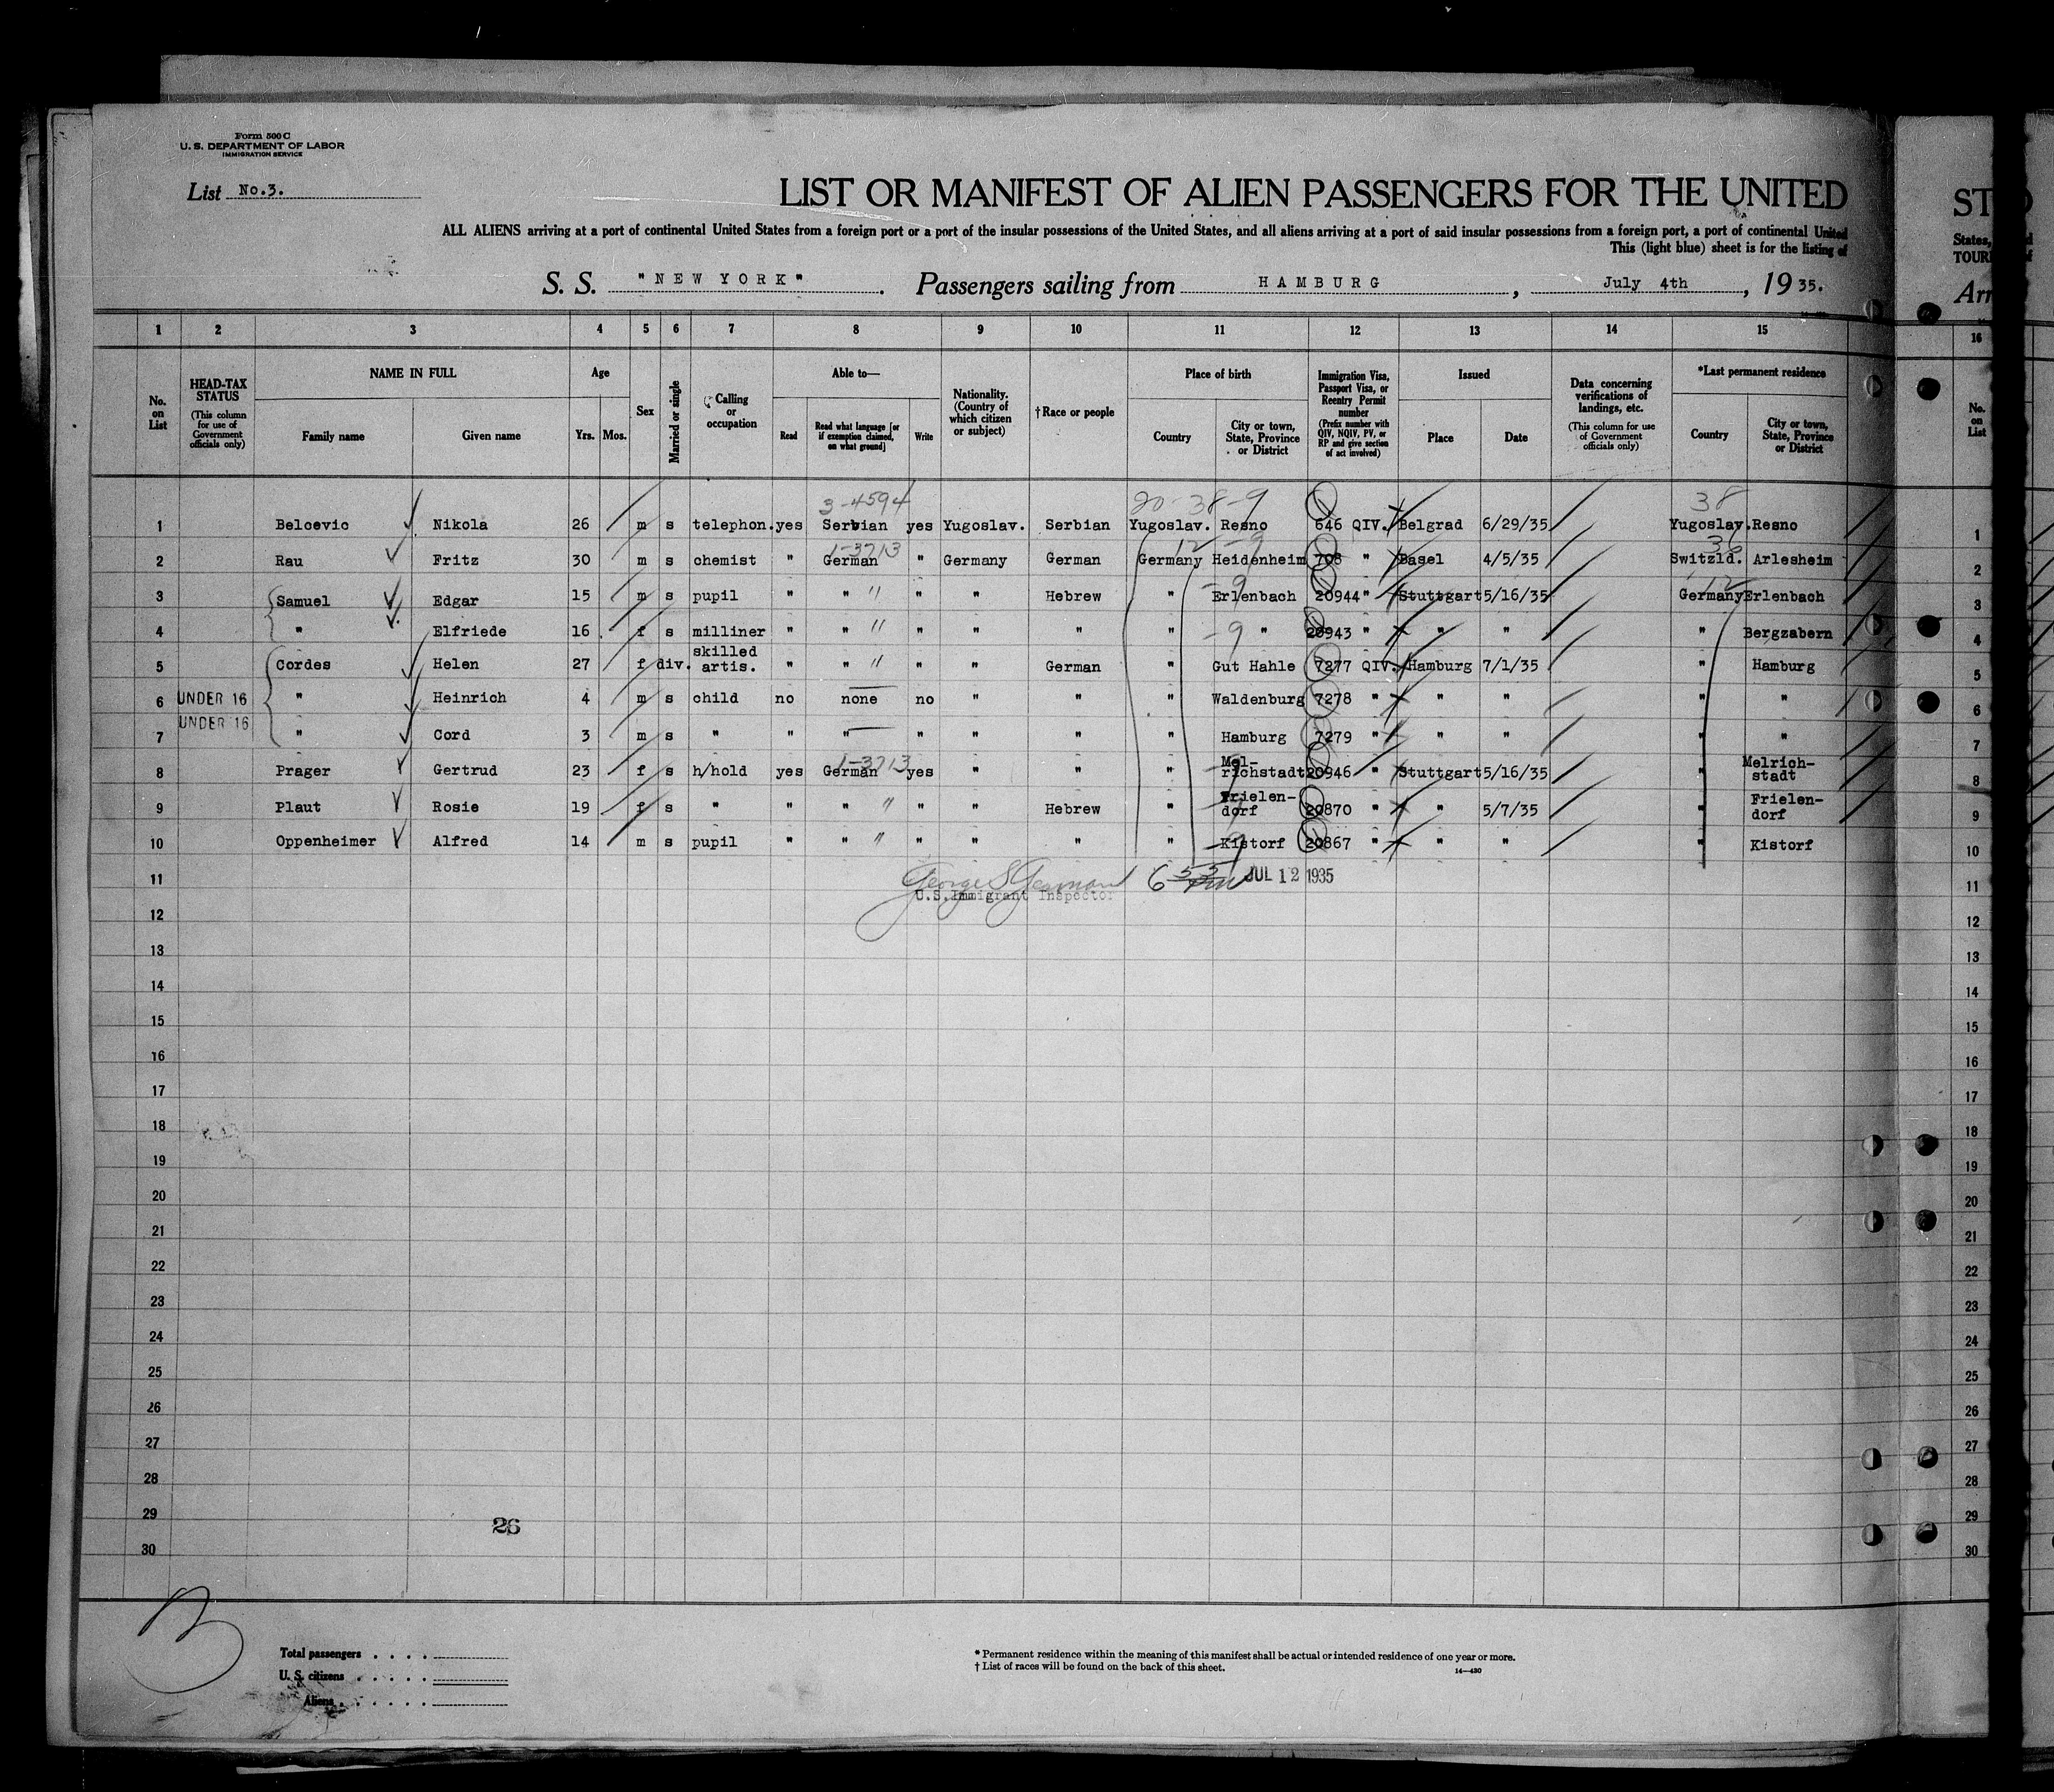 Form 500 C
U. S. DEPARTMENT OF LABOR
IMMIGRATION SERVICE
List No.3.
LIST OR MANIFEST OF ALIEN PASSENGERS FOR THE UNITED
ALL ALIENS arriving at a port of continental United States from a foreign port or a port of the insular possessions of the United States, and all aliens arriving at a port of said insular possessions from a foreign port, a port of continental United
This (light blue) sheet is for the listing of
S. S. "NEW YORK". Passengers sailing from HAMBURG, July 4th, 1935.
1 2 3 4 5 6 7 8 9 10 11 12 13 14 15
No. on List
HEAD-TAX STATUS (This column for use of Government officials only)
NAME IN FULL Family name Given name
Age Yrs. Mos.
Sex
Married or single
Calling or occupation
Able to— Read Read what language [or if exemption claimed, on what ground] Write
Nationality. (Country of which citizen or subject)
†Race or people
Place of birth Country City or town, State, Province or District
Immigration Visa, Passport Visa, or Reentry Permit number (Prefix number with QIV, NQIV, PV, or RP and give section of act involved)
Issued Place Date
Data concerning verifications of landings, etc. (This column for use of Government officials only)
*Last permanent residence Country City or town, State, Province or District
3-4594 20-38-9 38
1 Belcevic Nikola 26 m s telephon. yes Serbian yes Yugoslav. Serbian Yugoslav. Resno 646 QIV. Belgrad 6/29/35 Yugoslav. Resno
1-3713 12 -9 36
2 Rau Fritz 30 m s chemist " German " Germany German Germany Heidenheim 708 " Basel 4/5/35 Switzld. Arlesheim
-9 12
3 Samuel Edgar 15 m s pupil " " " " " Hebrew " Erlenbach 20944 " Stuttgart 5/16/35 Germany Erlenbach
4 " Elfriede 16 f s milliner " " " " " " " -9 " 20943 " " " " Bergzabern
5 Cordes Helen 27 f div. skilled artis. " " " " " German " Gut Hahle 7277 QIV. Hamburg 7/1/35 " Hamburg
6 UNDER 16 " Heinrich 4 m s child no none no " " " Waldenburg 7278 " " " " "
7 UNDER 16 " Cord 3 m s " " " " " " " Hamburg 7279 " " " " "
8 Prager Gertrud 23 f s h/hold yes German 1-3713 yes " " " Mel-richstadt 20946 " Stuttgart 5/16/35 " Melrich-stadt
9 Plaut Rosie 19 f s " " " " " " Hebrew " Frielen-dorf 20870 " " 5/7/35 " Frielen-dorf
10 Oppenheimer Alfred 14 m s pupil " " " " " " " Kistorf 20867 " " " " Kistorf
11 JUL 12 1935
U.S.Immigrant Inspector
12
13
14
15
16
17
18
19
20
21
22
23
24
25
26
27
28
29
26
30
Total passengers . . . .
U. S. citizens . . . . .
Aliens . . . . . .
* Permanent residence within the meaning of this manifest shall be actual or intended residence of one year or more.
† List of races will be found on the back of this sheet.
14—430
ST
States,
TOUR
Arr
16
No. on List
1
2
3
4
5
6
7
8
9
10
11
12
13
14
15
16
17
18
19
20
21
22
23
24
25
26
27
28
29
30